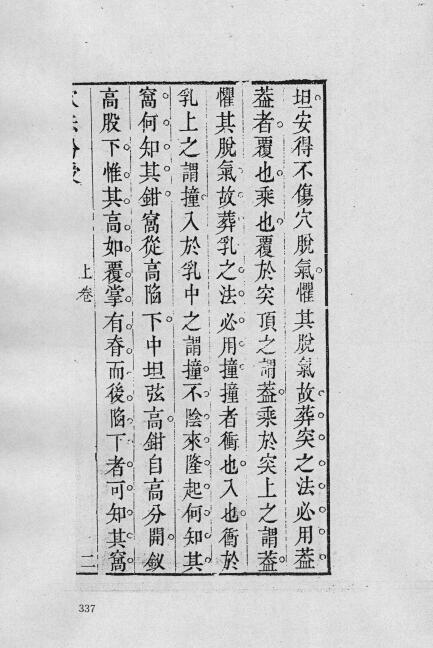 坦安得不傷穴脫氣懼其脫氣故葬突之法必用葢
葢者覆也乘也覆於突頂之謂葢乘於突上之謂葢
懼其脫氣故葬乳之法必用撞撞者衝也入也衝於
乳上之謂撞入於乳中之謂撞不陰來隆起何知其
窩何知其鉗窩從高陷下中坦弦高鉗自高分開釵
高股下惟其高如覆掌有脊而後陷下者可知其窩
上卷
二
337